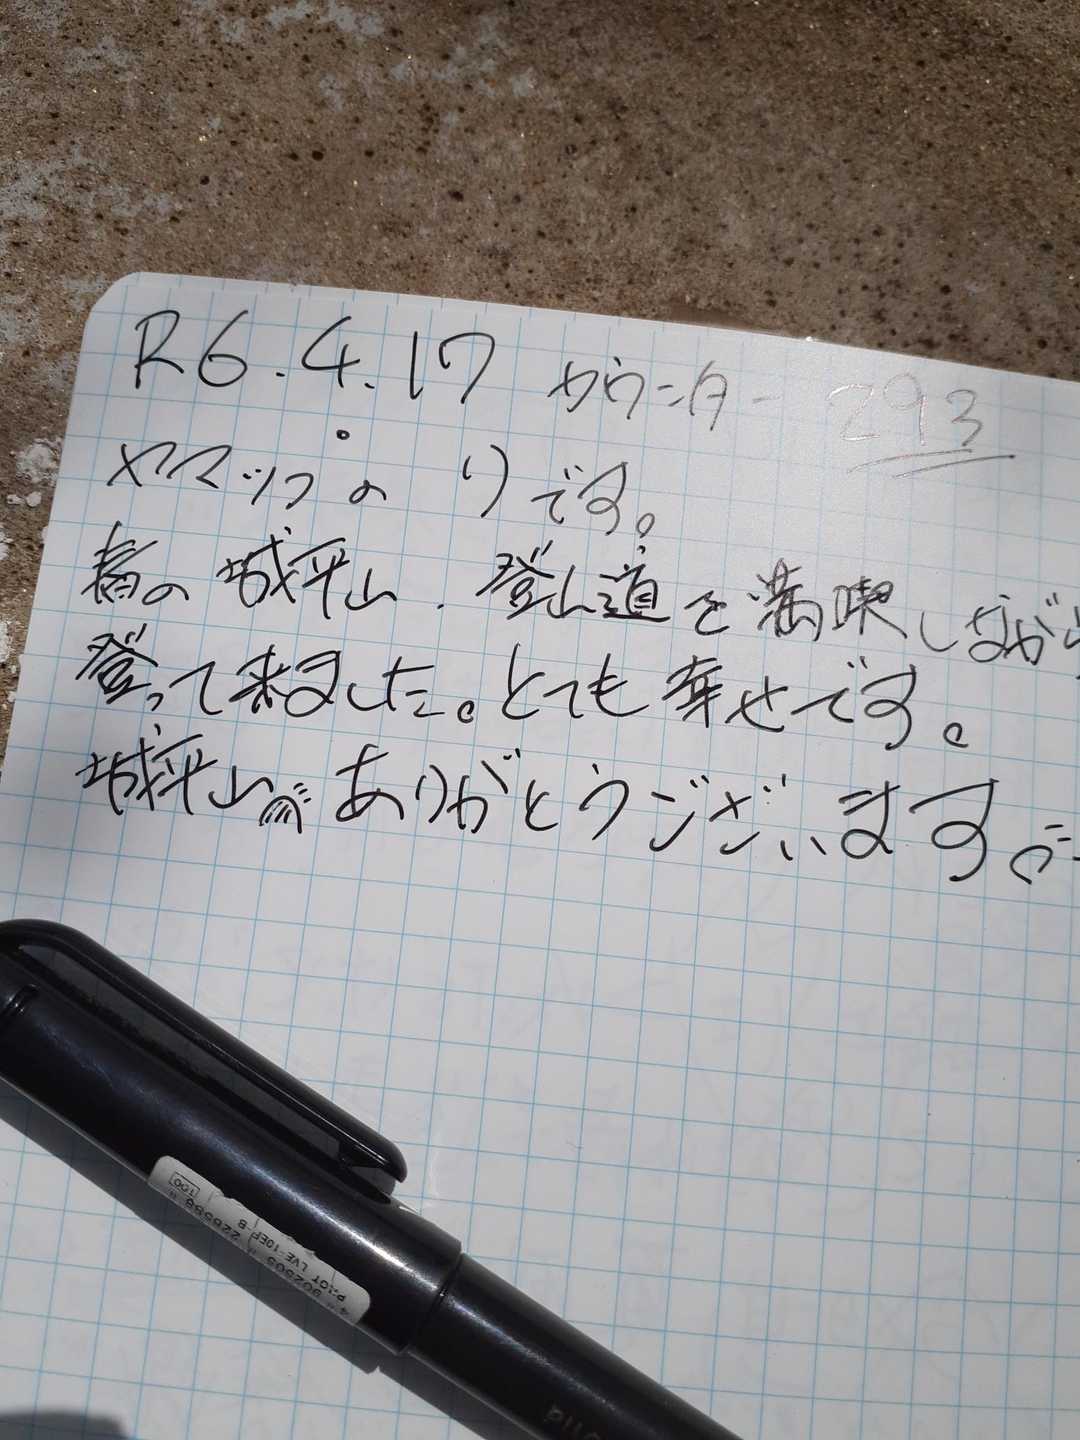 R6.4.17 カウンター 293
ヤマップの りです。
春の城平山.登山道を満喫しながら
登って来ました。とても幸せです。
城平山 ありがとうございます
4 "902505" 226588"
PILOT LVE-10EF-B
100